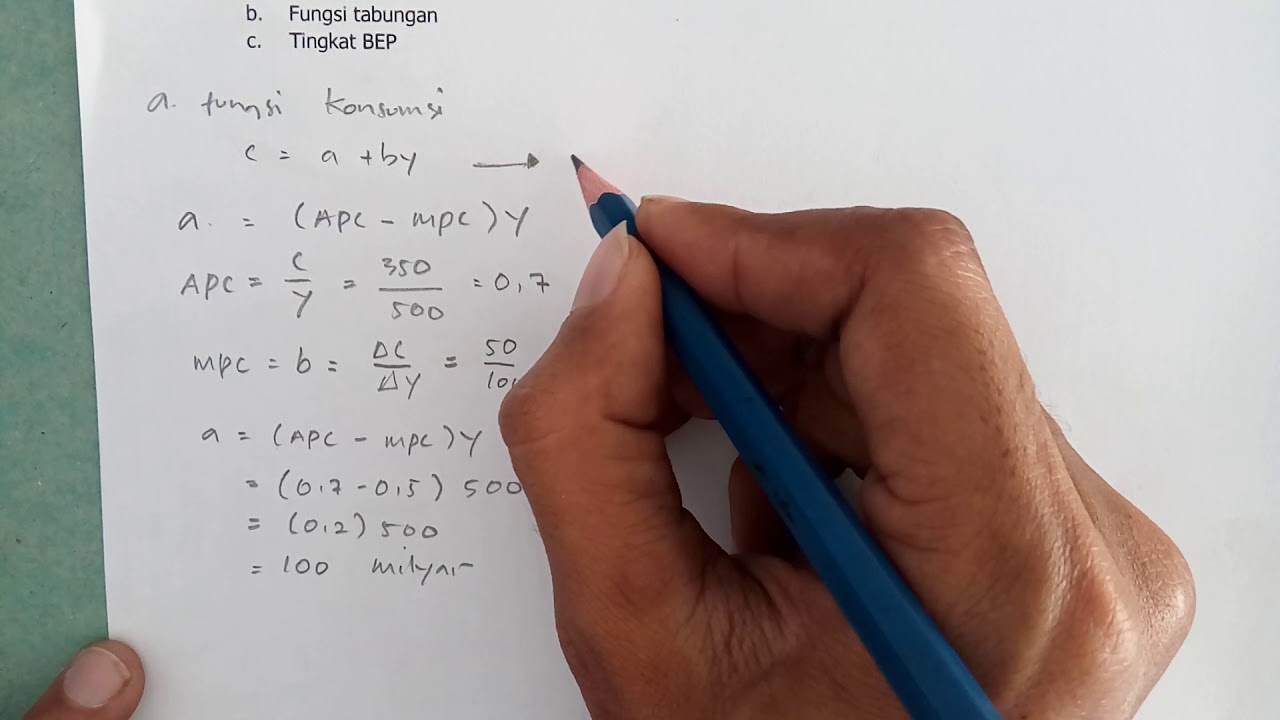 b. Fungsi tabungan
c. Tingkat BEP
a. fungsi konsumsi
c = a + by →
a. = (APC - mpc) Y
APC = C/Y = 350/500 = 0,7
mpc = b = ΔC/ΔY = 50/100
a = (APC - mpc) Y
= (0,7 - 0,5) 500
= (0,2) 500
= 100 milyar